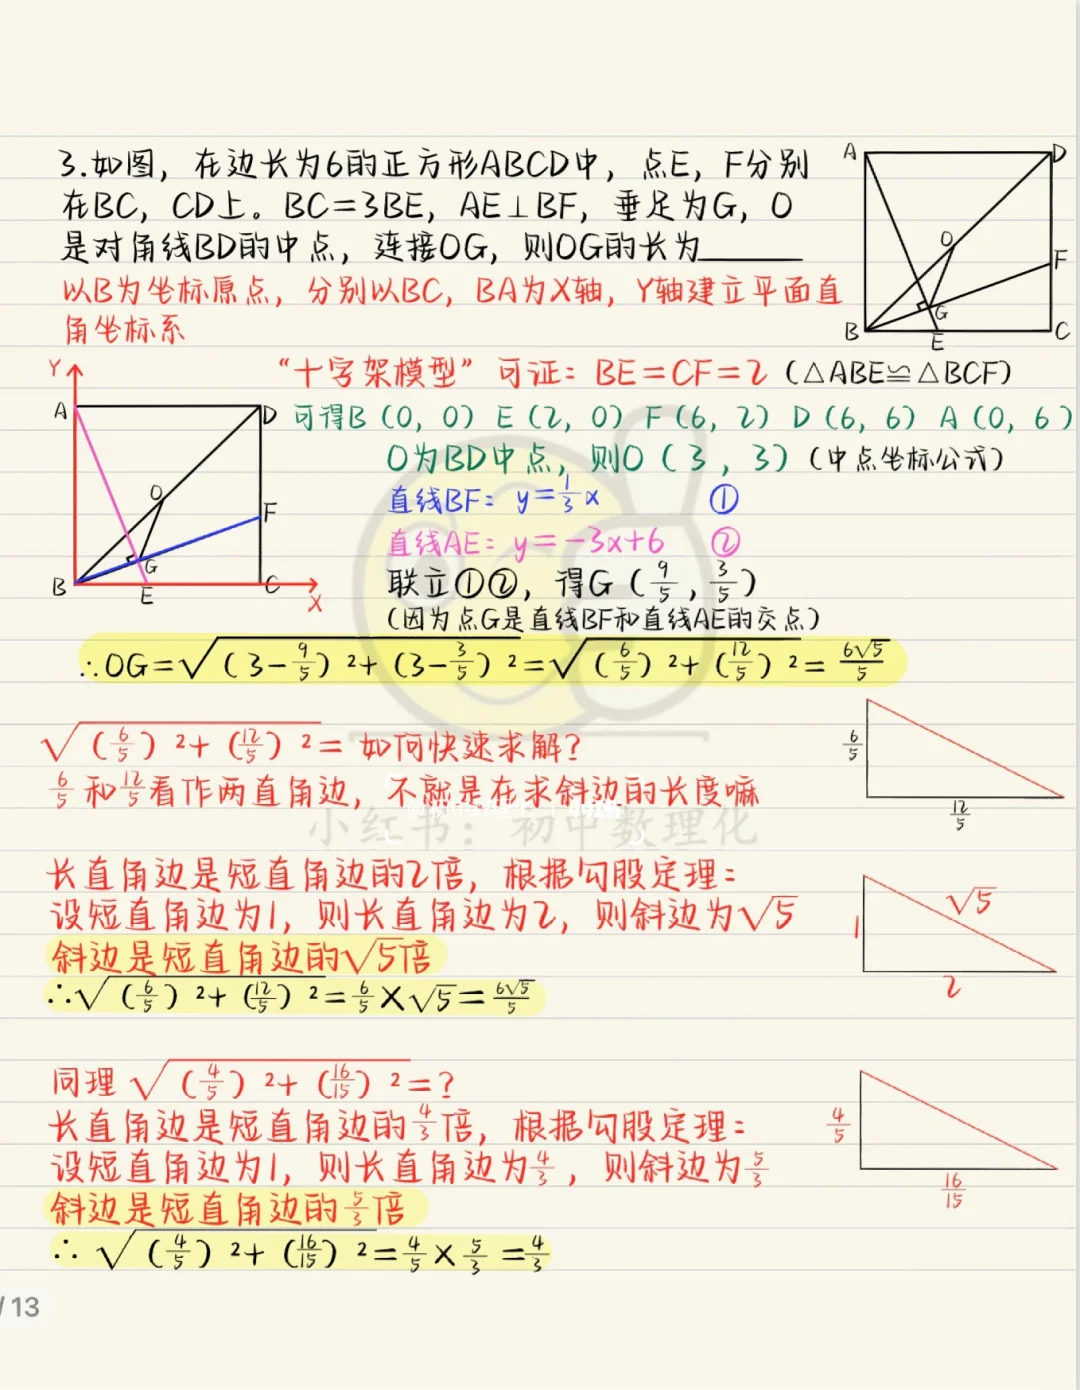 3.如图，在边长为6的正方形ABCD中，点E，F分别
在BC，CD上。BC=3BE，AE⊥BF，垂足为G，O
是对角线BD的中点，连接OG，则OG的长为______
以B为坐标原点，分别以BC，BA为X轴，Y轴建立平面直
角坐标系
A D
O
F
G
B E C
“十字架模型”可证：BE=CF=2（△ABE≌△BCF）
可得B（0，0）E（2，0）F（6，2）D（6，6）A（0，6）
O为BD中点，则O（3，3）（中点坐标公式）
直线BF：y=1/3x ①
直线AE：y=-3x+6 ②
联立①②，得G（9/5，3/5）
（因为点G是直线BF和直线AE的交点）
Y
A D
O
F
G
B E C
X
∴OG=√(3-9/5)²+(3-3/5)²=√(6/5)²+(12/5)²=6√5/5
√(6/5)²+(12/5)²=如何快速求解？
6/5和12/5看作两直角边，不就是在求斜边的长度嘛
6/5
12/5
小红书：初中数理化
长直角边是短直角边的2倍，根据勾股定理：
设短直角边为1，则长直角边为2，则斜边为√5
斜边是短直角边的√5倍
∴√(6/5)²+(12/5)²=6/5×√5=6√5/5
√5
1
2
同理√(4/5)²+(16/15)²=？
长直角边是短直角边的4/3倍，根据勾股定理：
设短直角边为1，则长直角边为4/3，则斜边为5/3
斜边是短直角边的5/3倍
∴√(4/5)²+(16/15)²=4/5×5/3=4/3
4/5
16/15
/13